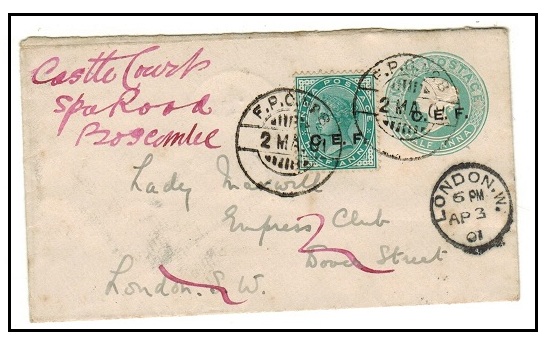 Castle Court
Spa Road
Boscombe
F.P.O.
2 MA
C.E.F.
INDIA POSTAGE
HALF ANNA
F.P.O.
2 MA
C.E.F.
POSTAGE
HALF ANNA
LONDON.W.
6 PM
AP 3
01
Lady Maxwell
Empress Club
Dover Street
London. S.W.